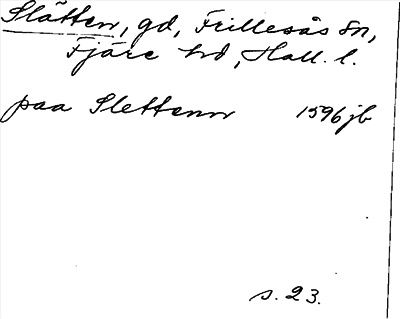 Slätten, gd, Frillesås sn,
Fjäre hd, Hall. l.
paa Slettenn 1596 jb
s. 23.